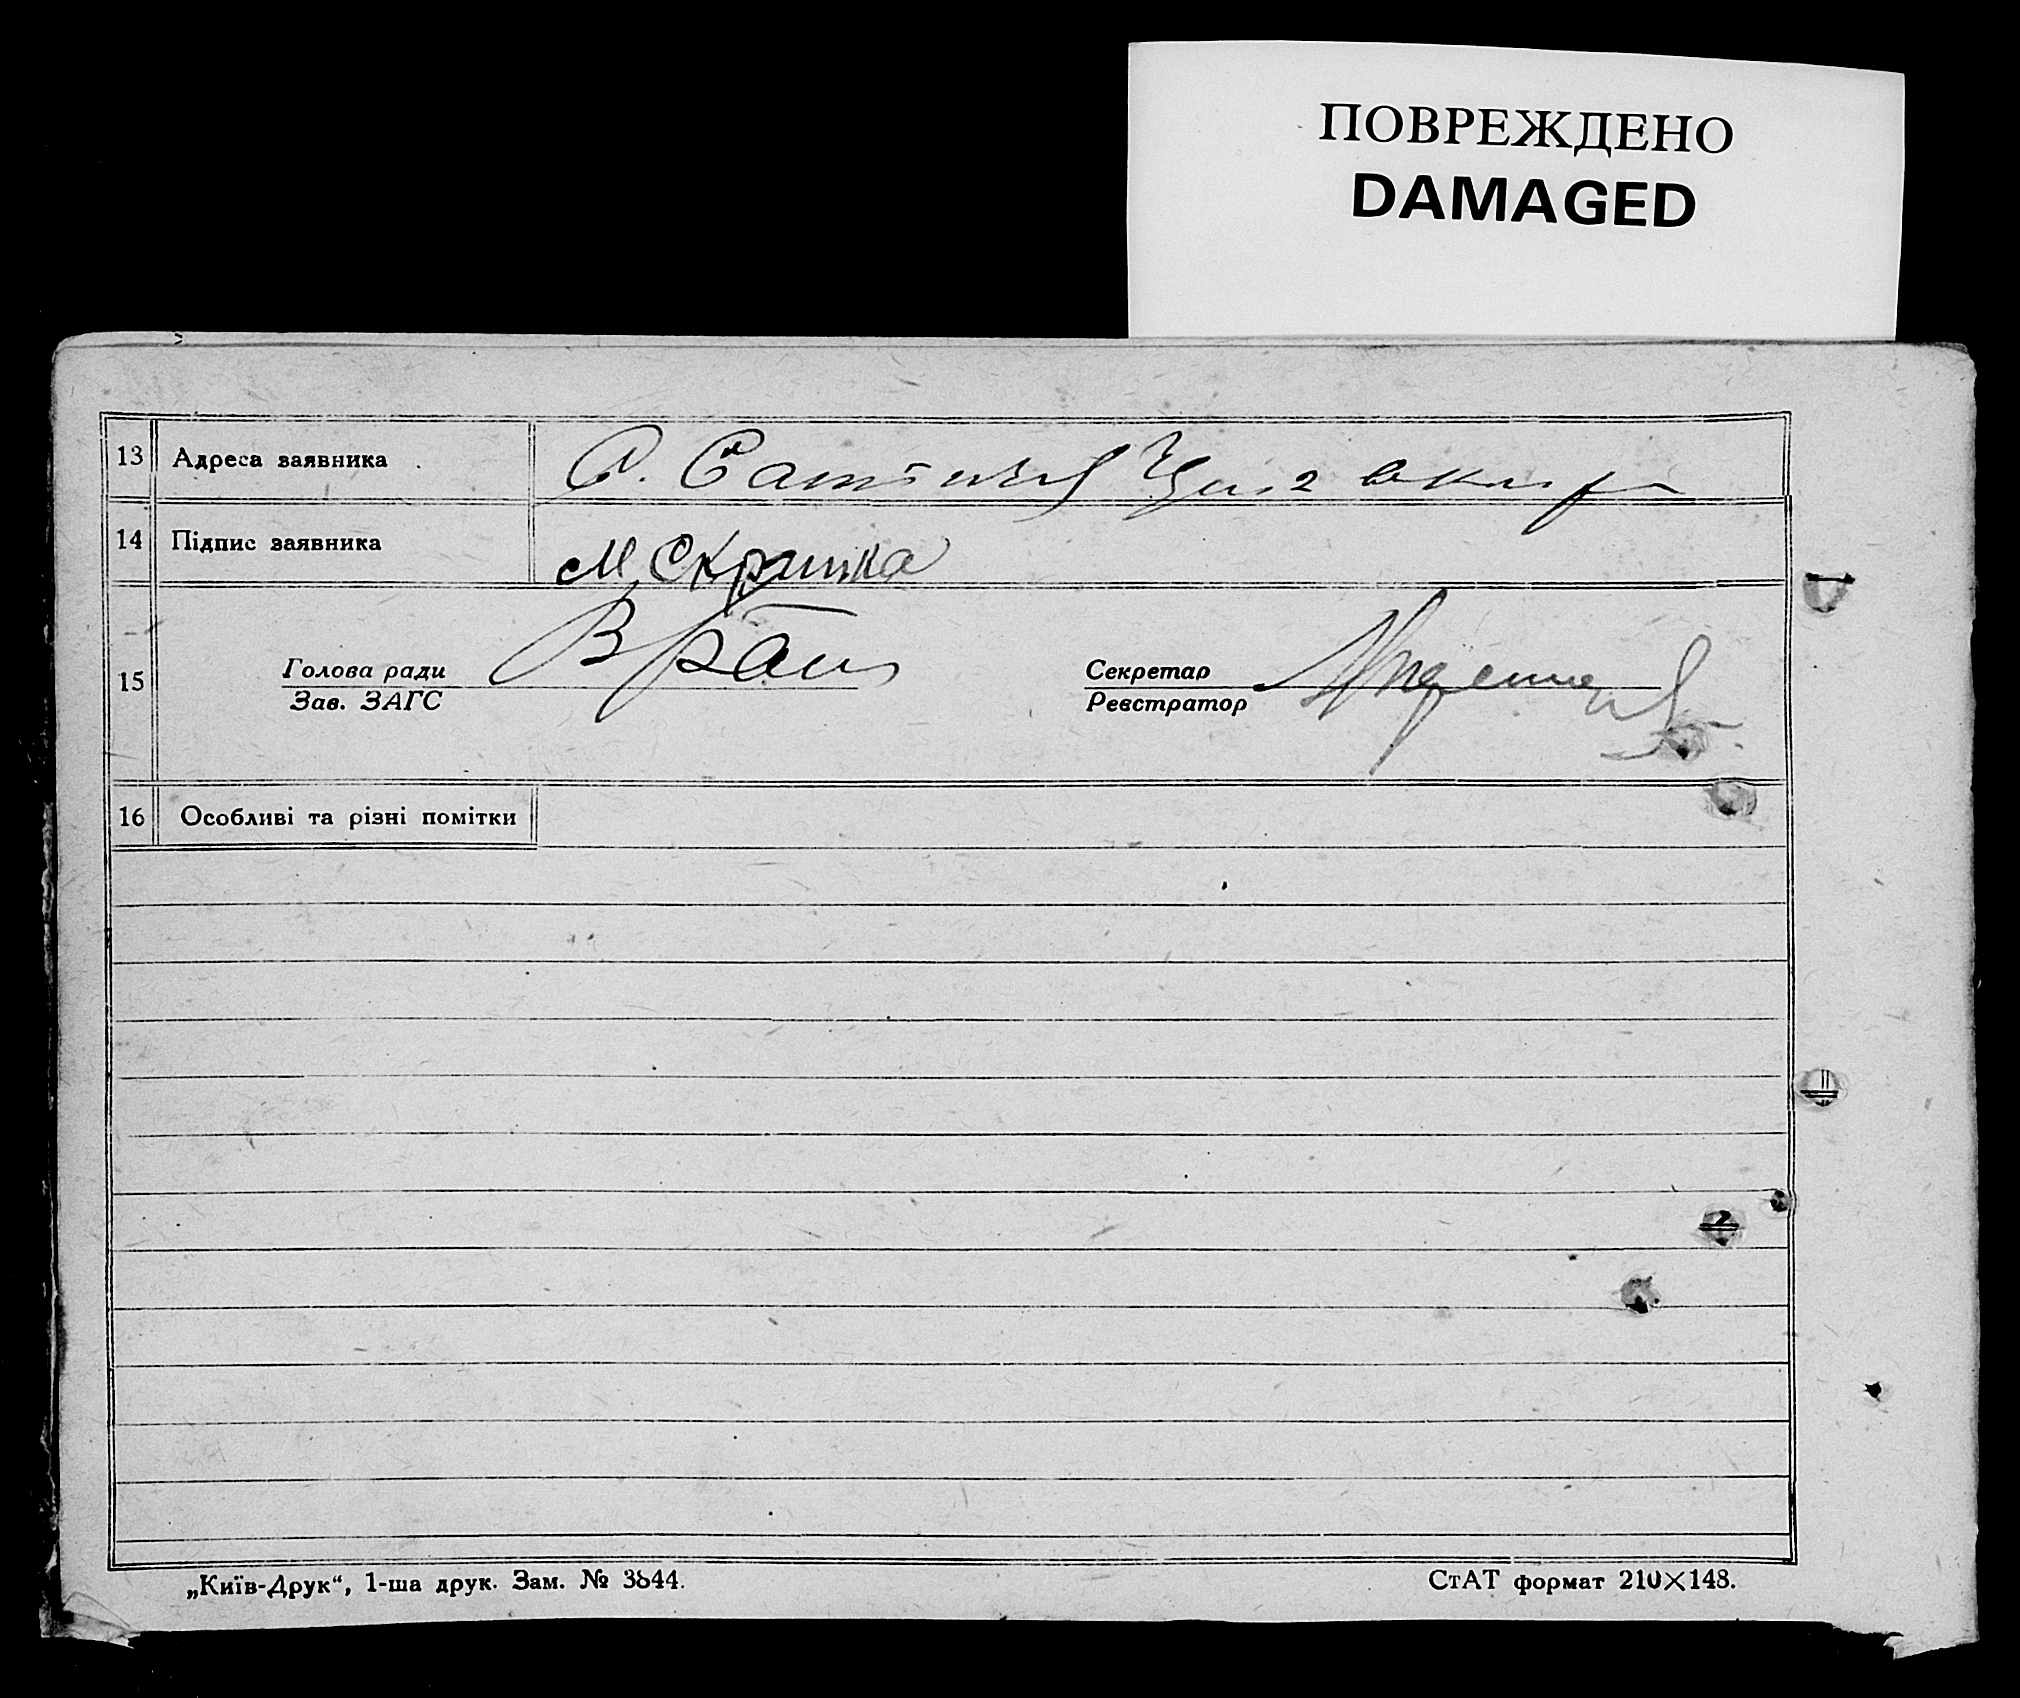 ПОВРЕЖДЕНО
DAMAGED
13 Адреса заявника С.
14 Підпис заявника М. Скрипка
15 Голова ради
Зав. ЗАГС
Секретар
Реєстратор
16 Особливі та різні помітки
„Київ-Друк“, 1-ша друк. Зам. № 3844.
СтАТ формат 210×148.